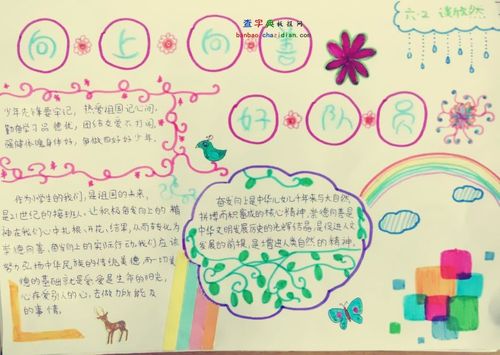 查字典板报网
banbao.chazidian.com
六.2
向上向善
好队员
少年先锋要牢记，热爱祖国记心间。
勤奋学习品德优，团结友爱不打闹。
强健体魄身体好，争做四好好少年。
作为小学生的我们，是祖国的未来，
是21世纪的接班人，让积极奋发向上的精
神在我们心中扎根、开花、结果，从而转化为
崇德向善、奋发向上的实际行动。我们应该
努力弘扬中华民族的传统美德，而一切美
德的基础就是爱，爱是生命的阳光，
心存爱引人的心，去做力所能及
的事情。
奋发向上是中华儿女几千年来与大自然
拼搏而积蓄成的核心精神。崇德向善是
中华文明发展历史的光辉结晶，是促进人文
发展的前提，是增进人类自然的精神。